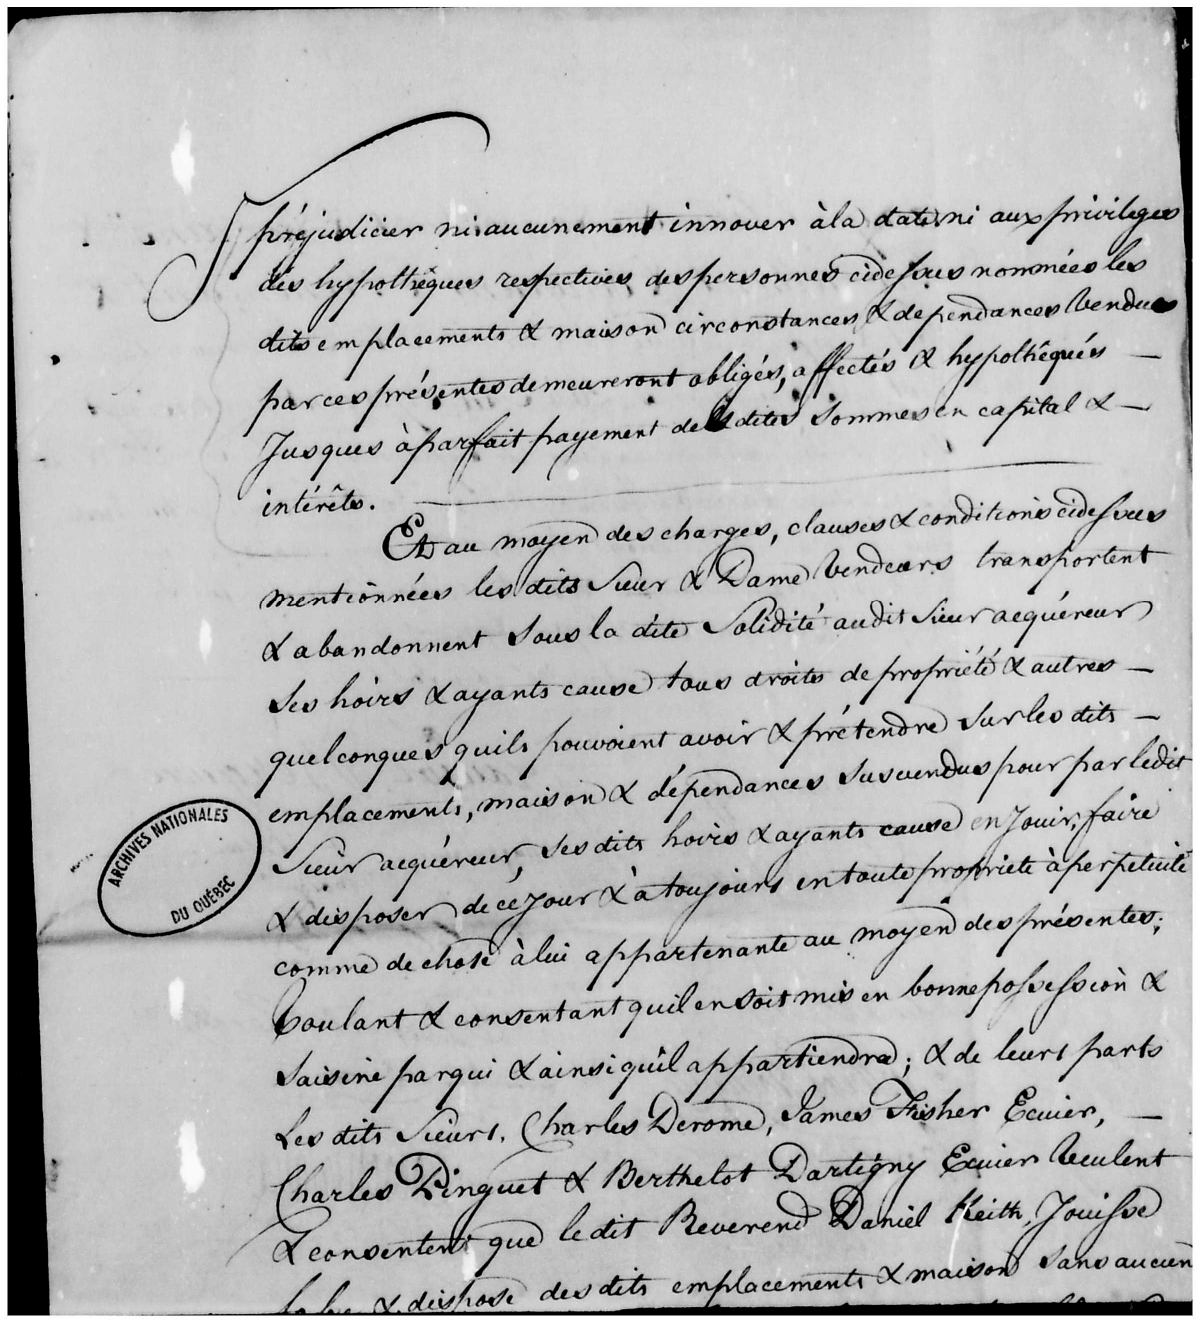 préjudicier ni aucunement innover à la date ni aux privileges
des hypothéques respectives des personnes cidessus nommées les
dits emplacements & maison circonstances & dependances Vendues
par ces présentes demeureront obligés, affectés & hypothéqués —
Jusques à parfait payement desdites Sommes en capital & —
intérêts.
Et au moyen des charges, clauses & conditions cidessus
mentionnées les dits Sieur & Dame Vendeurs transportent
& abandonnent Sous la dite Solidité audit Sieur acquéreur
Ses hoirs & ayants cause tous droits de propriété & autres —
quelconques quils pouvoient avoir & prétendre Sur les dits —
emplacements, maison & dépendances Susvendus pour par ledit
Sieur acquéreur, Ses dits hoirs & ayants cause en Jouir, faire
& disposer de ce Jour & à toujours en toute propriete à perpetuité
comme de chose à lui appartenante au moyen des présentes;
Voulant & consentant quil en Soit mis en bonne possession &
Saisine par qui & ainsi quil appartiendra; & de leurs parts
Les dits Sieurs, Charles Derome, James Fisher Ecuier, —
Charles Pinguet & Berthelot Dartigny Ecuier Veulent
& consentent que le dit Reverend Daniel Keith, Jouisse
& dispose des dits emplacements & maison Sans aucun
ARCHIVES NATIONALES
DU QUÉBEC